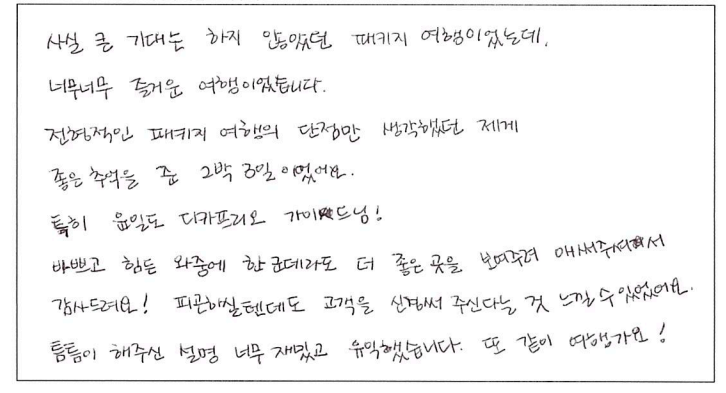 사실 큰 기대는 하지 않았던 패키지 여행이었는데,
너무너무 즐거운 여행이었습니다.
전형적인 패키지 여행의 단점만 생각했던 제게
좋은 추억을 준 2박 3일이었어요.
특히 윤일도 디카프리오 가이드님!
바쁘고 힘든 와중에 한 군데라도 더 좋은 곳을 보여주려 애써주셔서
감사드려요! 피곤하실텐데도 고객을 신경써 주신다는 것 느낄 수 있었어요.
틈틈이 해주신 설명 너무 재밌고 유익했습니다. 또 같이 여행가요!